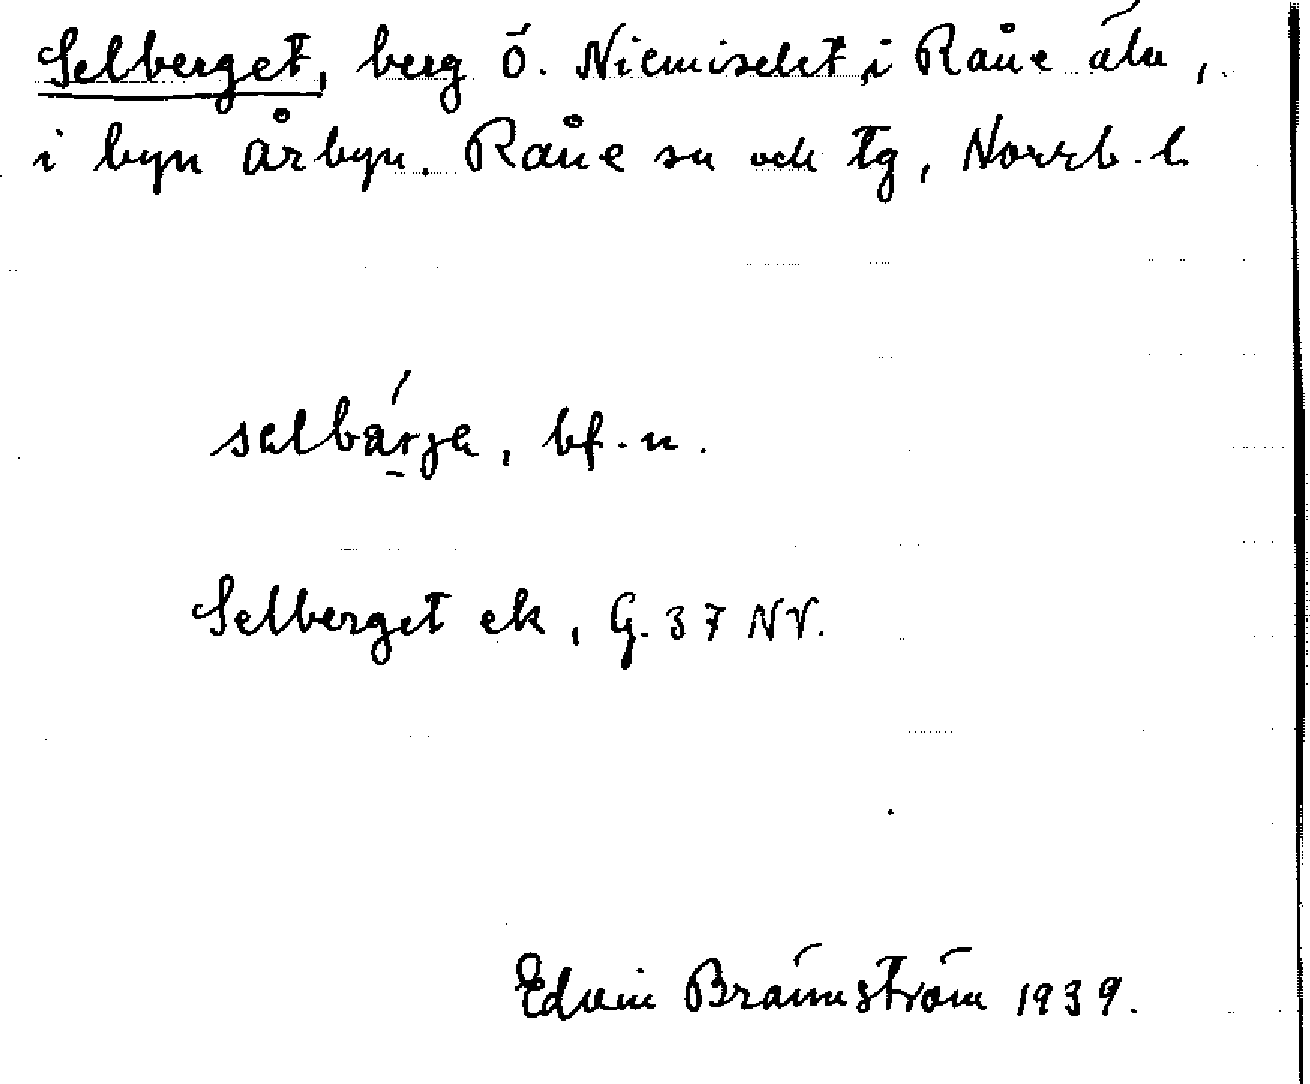 Selberget, berg ö. Niemiselet i Råne älv,
i byn Årbyn. Råne sn och tg, Norrb. l.
selbärje, bf. n.
Selberget ek, G. 37 NV.
Edvin Brännström 1939.